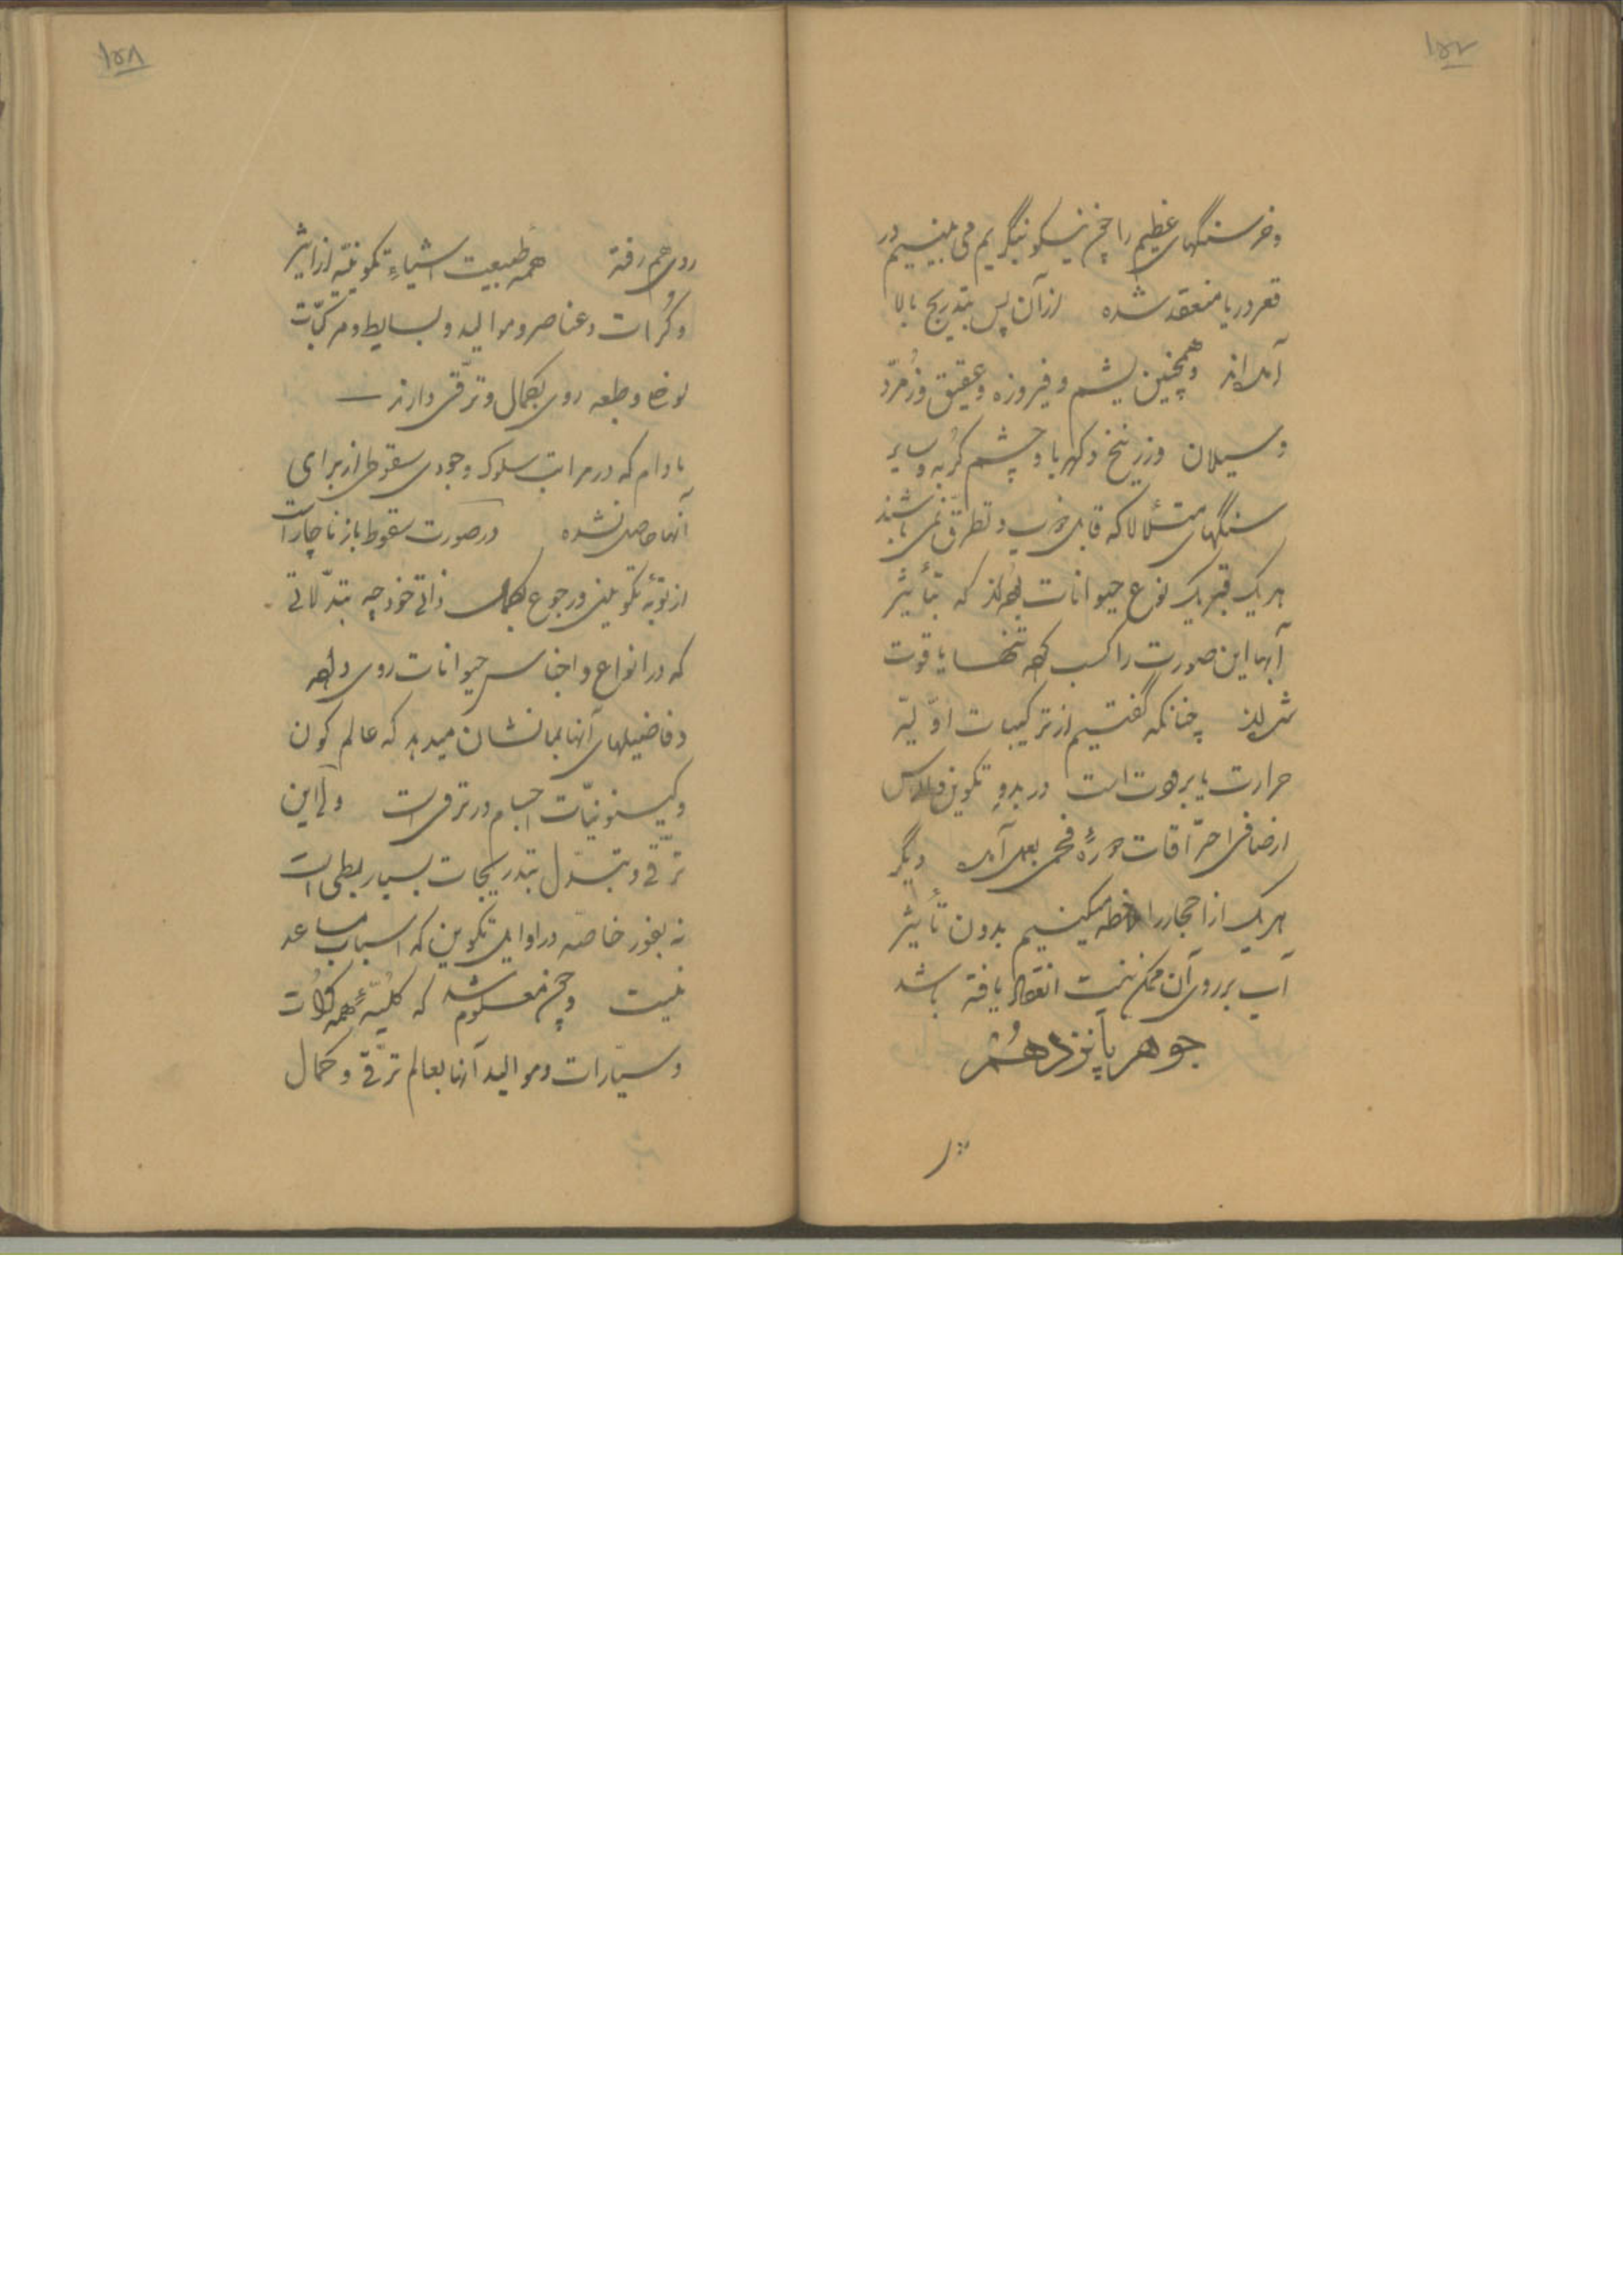 ۱۵۷
و خرسنگهای عظیم را چون نیکو بنگریم می بینیم در
قعر دریا منعقد شده از آن پس بتدریج بالا
آمده‌اند و همچنین یشم و فیروزه و عقیق و زمرّد
و سیلان و زرنیخ و کهربا و چشم گربه و سایر
سنگهای متلألأ که قابل ذوب و تطرّق نمی باشند
هر یک قبر یک نوع حیوانات بوده‌اند که بتأثیر
آبها این صورت را کسب کرده تنها یاقوت
چنانکه گفتیم از ترکیبات اوّلیّه
حرارت یا برودت است در بدو تکوین و الماس
از صافی احتراقات فحمی بعمل آمده دیگر
هر یک از احجار را ملاحظه میکنیم بدون تأثیر
آب بر روی آن ممکن نیست انعقاد یافته باشد
جوهر پانزدهم
۱۵۸
روی هم رفته همه طبیعت اشیاء تکوینیّه از اثیر
و کُرات و عناصر و موالید و بسایط و مرکّبات
نوعا و طبعه روی بکمال و ترّقی دارند —
مادام که در مراتب سلوک وجودی سقوطی از برای
آنها حاصل نشده در صورت سقوط باز ناچار است
از توبهٔ تکوینی و رجوع بکمال ذاتی خود چه تبدّلاتی
که در انواع و اجناس حیوانات روی داده
و فاضیلهای آنها بما نشان میدهد که عالم کون
و کینونیّات اجسام در ترقی است ولی این
ترّقی و تبدّل بتدریجات بسیار بطی است
نه بفور خاصّه در اوایل تکوین که اسباب مساعد
نیست و چون معلوم شد که کلیّهٔ همه کرات
و سیّارات و موالید آنها بعالم ترّقی و کمال